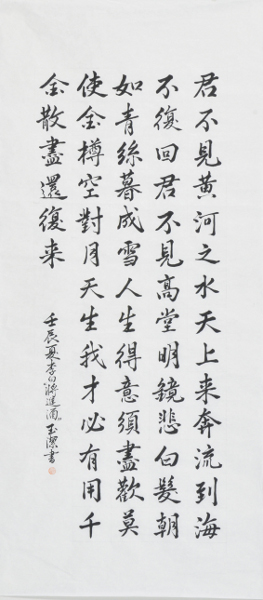 君不見黃河之水天上来奔流到海
不復回君不見高堂明鏡悲白髮朝
如青絲暮成雪人生得意須盡歡莫
使金樽空對月天生我才必有用千
金散盡還復来
壬辰夏李白將進酒玉潔書